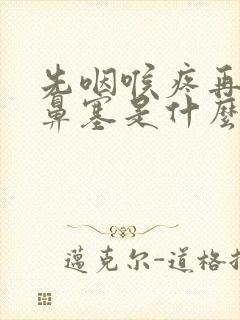 先咽喉疼再
鼻塞是什麼
邁克尔-道格拉